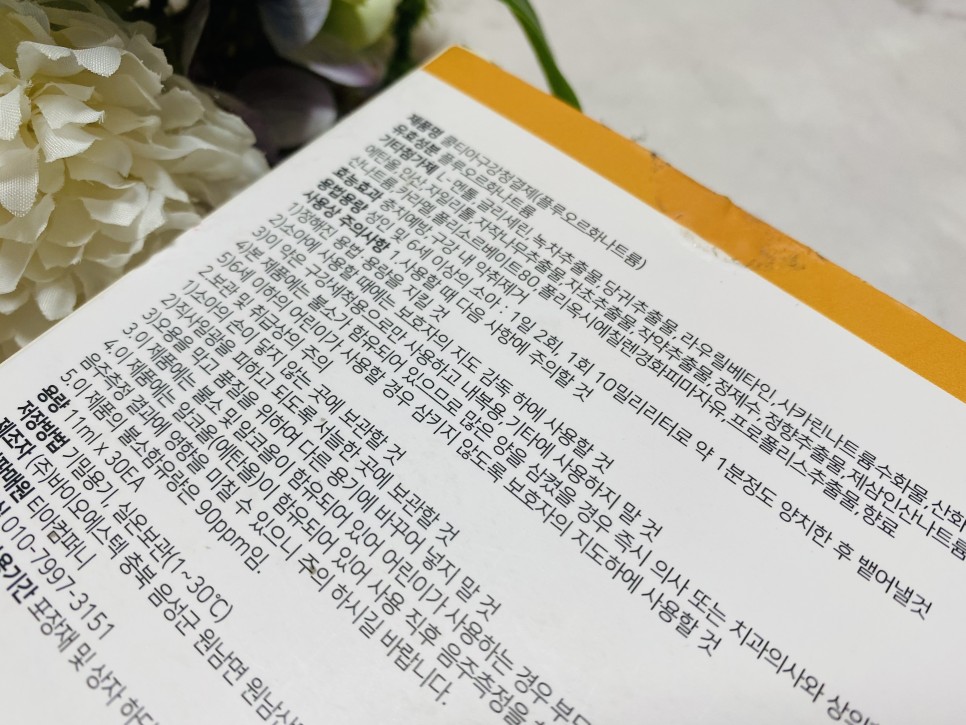 제품명 콜티아구강청결제(플루오르화나트륨)
유효성분 플루오르화나트륨
기타첨가제 L-멘톨, 글리세린, 녹차추출물, 당귀추출물, 라우릴베타인, 사카린나트륨수화물, 산화
에탄올, 인산, 자일리톨, 자작나무추출물, 자초추출물, 작약추출물, 정제수, 정향추출물, 제삼인산나트륨
산나트륨, 카라멜, 폴리소르베이트80, 폴리옥시에칠렌경화피마자유, 프로폴리스추출물, 향료
효능효과 충치예방, 구강 내 악취제거
용법용량 성인 및 6세 이상의 소아 : 1일 2회, 1회 10밀리리터로 약 1분정도 양치한 후 뱉어낼것
사용상 주의사항 1.사용할 때 다음 사항에 주의할 것
1)정해진 용법 용량을 지킬 것
2)소아에 사용할 때에는 보호자의 지도 감독 하에 사용할 것
3)이 약은 구강세척용으로만 사용하고 내부용, 기타에 사용하지 말 것
4)본 제품에는 불소가 함유되어 있으므로 많은 양을 삼켰을 경우, 즉시 의사 또는 치과의사와 상의
5)6세 이하의 어린이가 사용할 경우 삼키지 않도록 보호자의 지도하에 사용할 것
2.보관 및 취급상의 주의
1)소아의 손이 닿지 않는 곳에 보관할 것
2)직사일광을 피하고 되도록 서늘한 곳에 보관할 것
3)오용을 막고 품질을 위하여 다른 용기에 바꾸어 넣지 말 것
3.이 제품에는 불소 및 알코올이 함유되어 있어 어린이가 사용하는 경우 부모
4.이 제품에는 알코올(에탄올)이 함유되어 있어 사용 직후 음주측정을
음주측정 결과에 영향을 미칠 수 있으니 주의 하시길 바랍니다.
5.이 제품의 불소함유량은 90ppm임.
용량 11ml x 30EA
저장방법 기밀용기, 실온보관(1~30℃)
제조자 (주)바이오에스텍 충북 음성군 원남면 원남산
판매원 티아컴퍼니
010-7997-3151
용기간 포장재 및 상자 하단